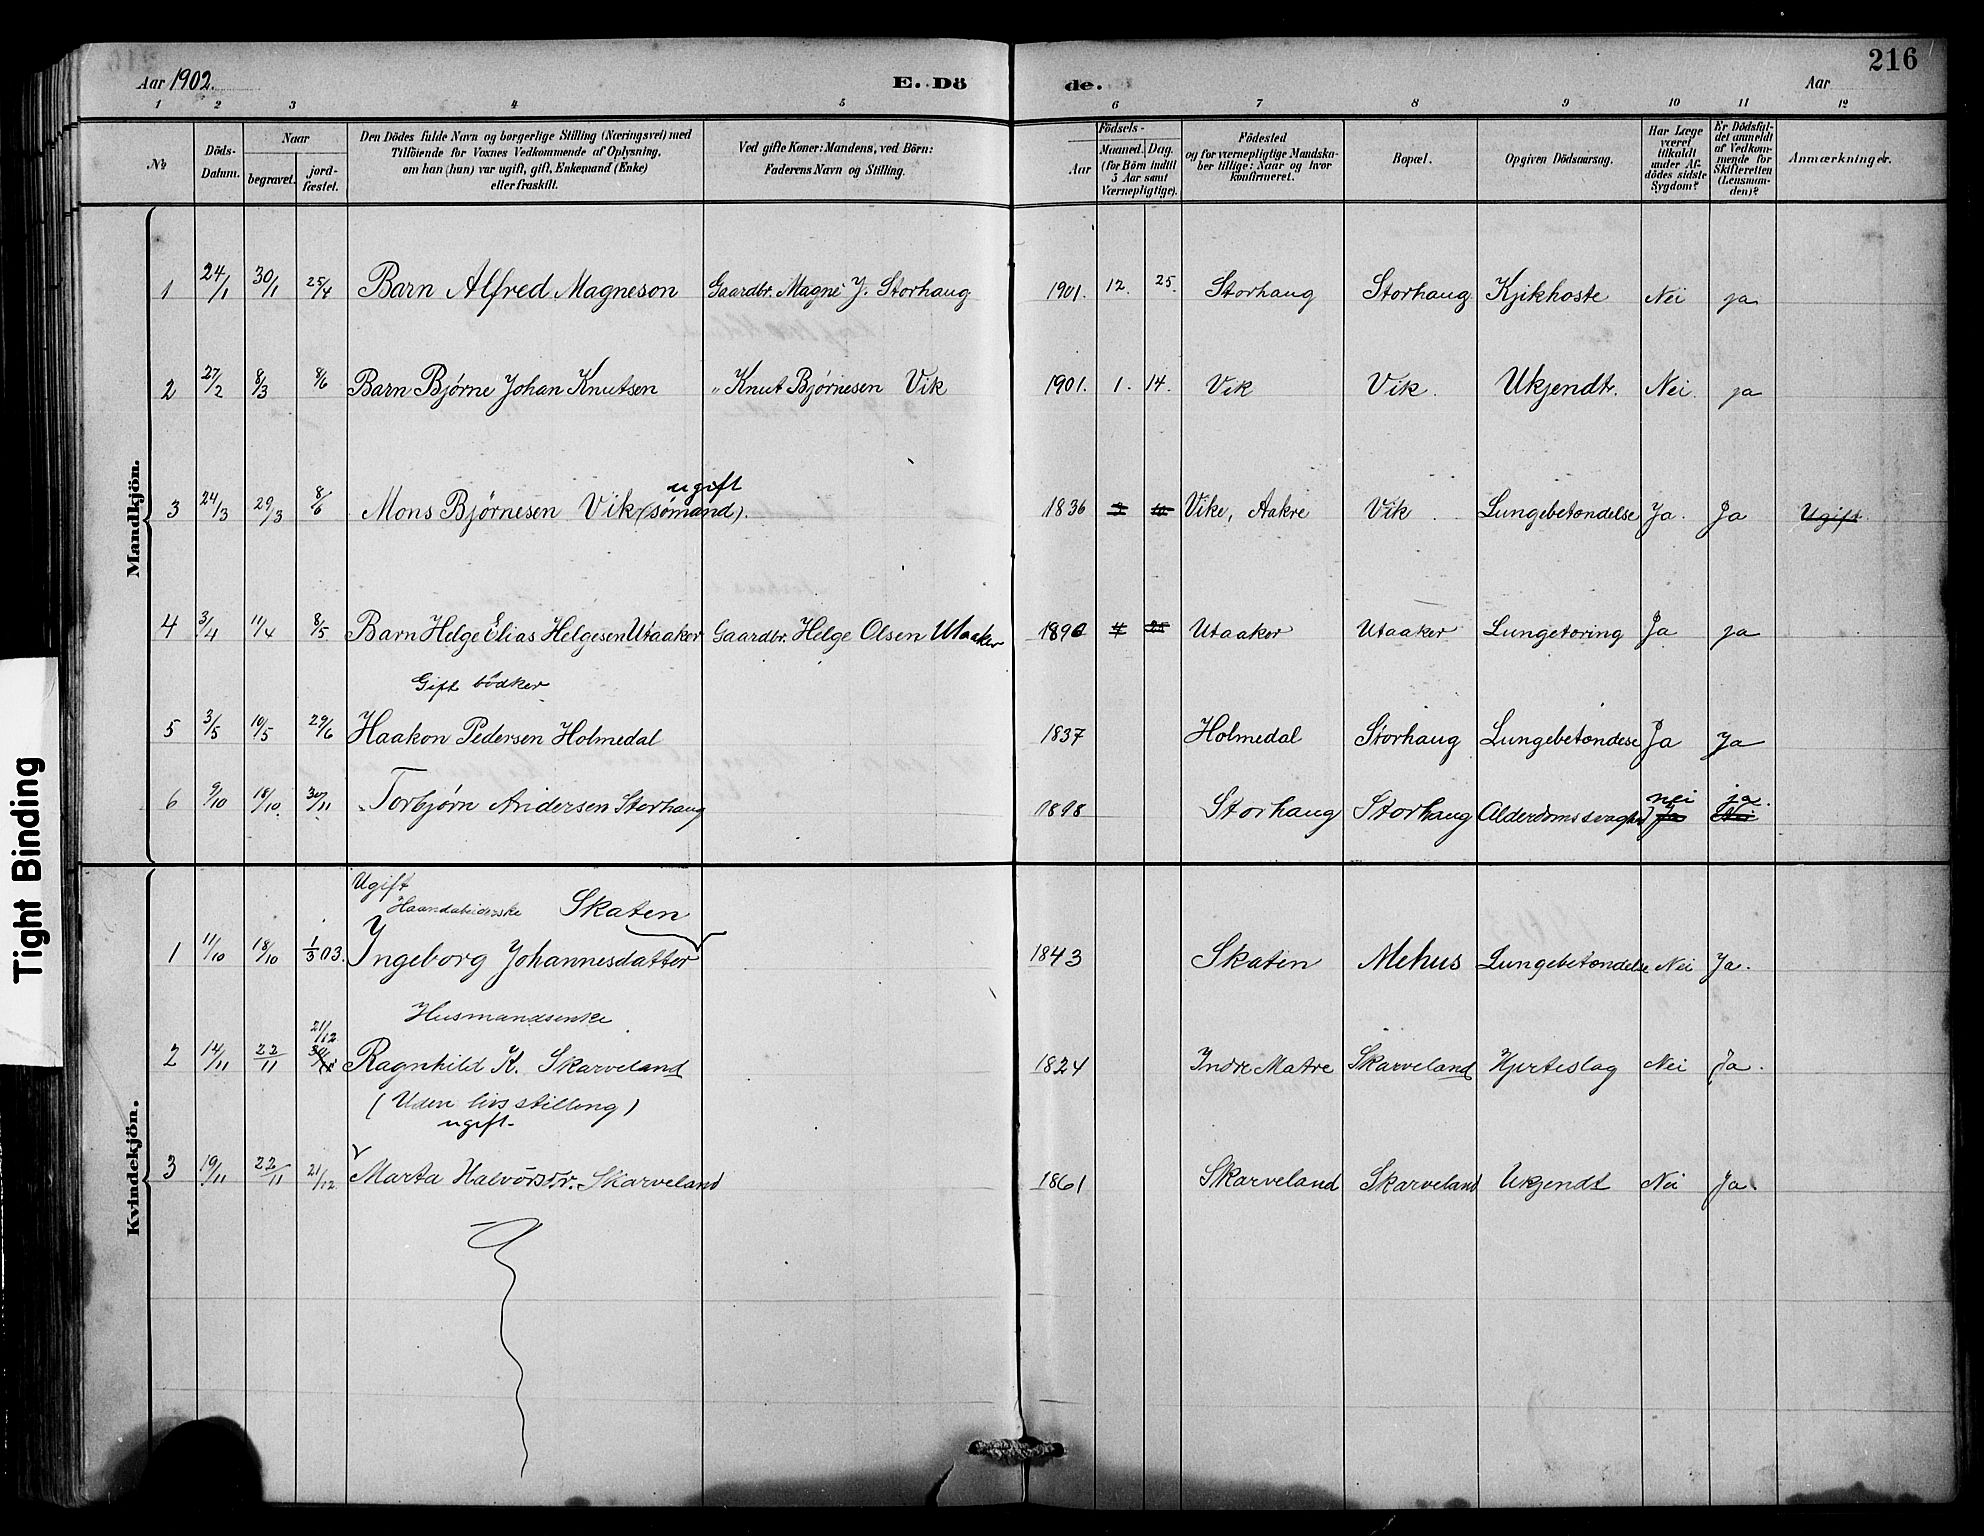 216
Aar 1902.
E. Dö
de.
Aar
1 2 3 4 5 6 7 8 9 10 11 12
No
Döds-
Datum.
Naar
begravet.
jord-
fæstet.
Den Dödes fulde Navn og borgerlige Stilling (Næringsvei) med
Tilföiende for Voxnes Vedkommende af Oplysning,
om han (hun) var ugift, gift, Enkemand (Enke)
eller fraskilt.
Ved gifte Koner: Mandens, ved Börn:
Faderens Navn og Stilling.
Födsels-
Aar
Maaned. Dag.
(for Börn indtil
5 Aar samt
Værnepligtige).
Födested
og for værnepligtige Mandska-
ber tillige: Naar og hvor
konfirmeret.
Bopæl.
Opgiven Dödsaarsag.
Har Læge
været
tilkaldt
under Af-
dödes sidste
Sygdom?
Er Dödsfal-
det anmeldt
af Vedkom-
mende for
Skifteretten
(Lensman-
den)?
Anmærkninger.
Mandkjön.
1 24/1 30/1 25/4 Barn Alfred Magneson Gaardbr. Magne J. Storhaug 1901. 12. 25. Storhaug Storhaug Kjikhoste Nei ja
2 27/2 8/3 8/6 Barn Bjørne Johan Knutsen " Knut Bjørnesen Vik 1901. 1. 14. Vik Vik. Ukjendt. Nei. ja
ugift
3 24/3 29/3 8/6 Mons Bjørnesen Vik (sømand). 1836 Vike, Aakre Vik Lungebetændelse Ja. Ja Ugift.
4 3/4 11/4 8/5 Barn Helge Elias Helgesen Utaaker Gaardbr. Helge Olsen Utaaker 1896 4 25 Utaaker Utaaker Lungetæring Ja ja
Gift bödker
5 3/5 10/5 29/6 Haakon Pedersen Holmedal 1837 Holmedal Storhaug Lungebetændese Ja Ja
nei ja.
6 9/10 18/10 30/11 Torbjørn Andersen Storhaug 1898 Storhaug Storhaug Alderdomssvaghed Ja Nei
Kvindekjön.
Ugift
Haandarbeiderske Skaten
1 11/10 18/10 1/3 03. Ingeborg Johannesdatter 1843 Skaten Mehus Lungebetændelse Nei Ja.
Husmandsenke
21/12
2 14/11 22/11 Ragnhild K. Skarveland 1824 Indre Matre Skarveland Hjerteslag Nei Ja.
(Uden livsstilling)
ugift-
3 19/11 22/11 21/12 Marta Halvorsdr. Skarveland 1861 Skarveland Skarveland Ukjendt Nei Ja.
Tight Binding